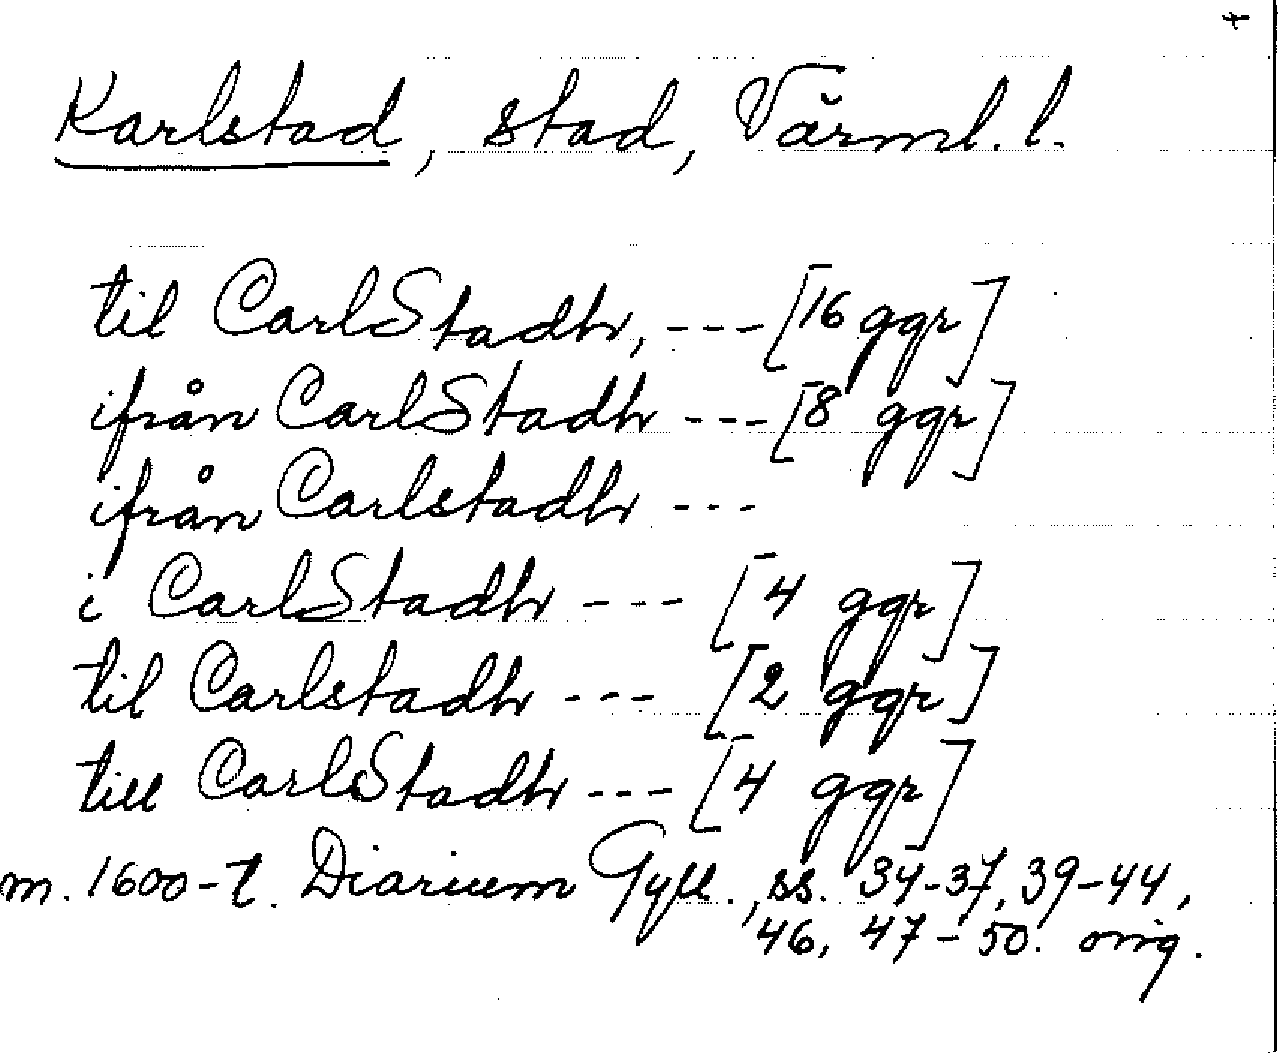 Karlstad, stad, Värml. l.
til CarlStadh, --- [16 ggr]
ifrån CarlStadh --- [8 ggr]
ifrån Carlstadh ---
i CarlStadh --- [4 ggr]
til Carlstadh --- [2 ggr]
till CarlStadh --- [4 ggr]
m. 1600-t. Diarium Gyll., ss. 34-37, 39-44,
46, 47-50. orig.